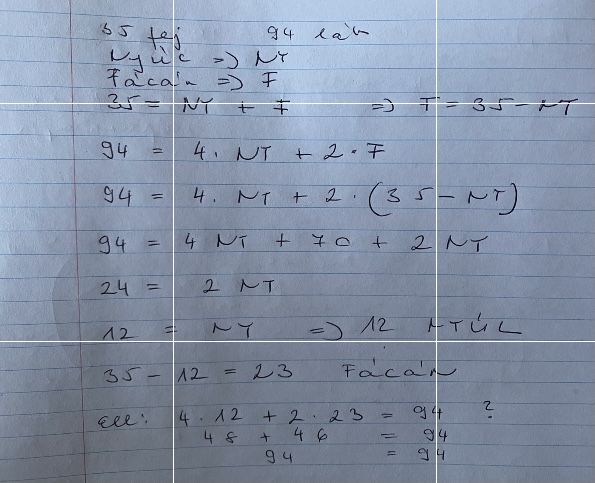 35 fej 94 láb
Nyúl => NY
Fácán => F
35 = NY + F => F = 35 - NY
94 = 4 · NY + 2 · F
94 = 4 · NY + 2 · (35 - NY)
94 = 4 NY + 70 + 2 NY
24 = 2 NY
12 = NY => 12 NYÚL
35 - 12 = 23 Fácán
Ell: 4 · 12 + 2 · 23 = 94 ?
48 + 46 = 94
94 = 94